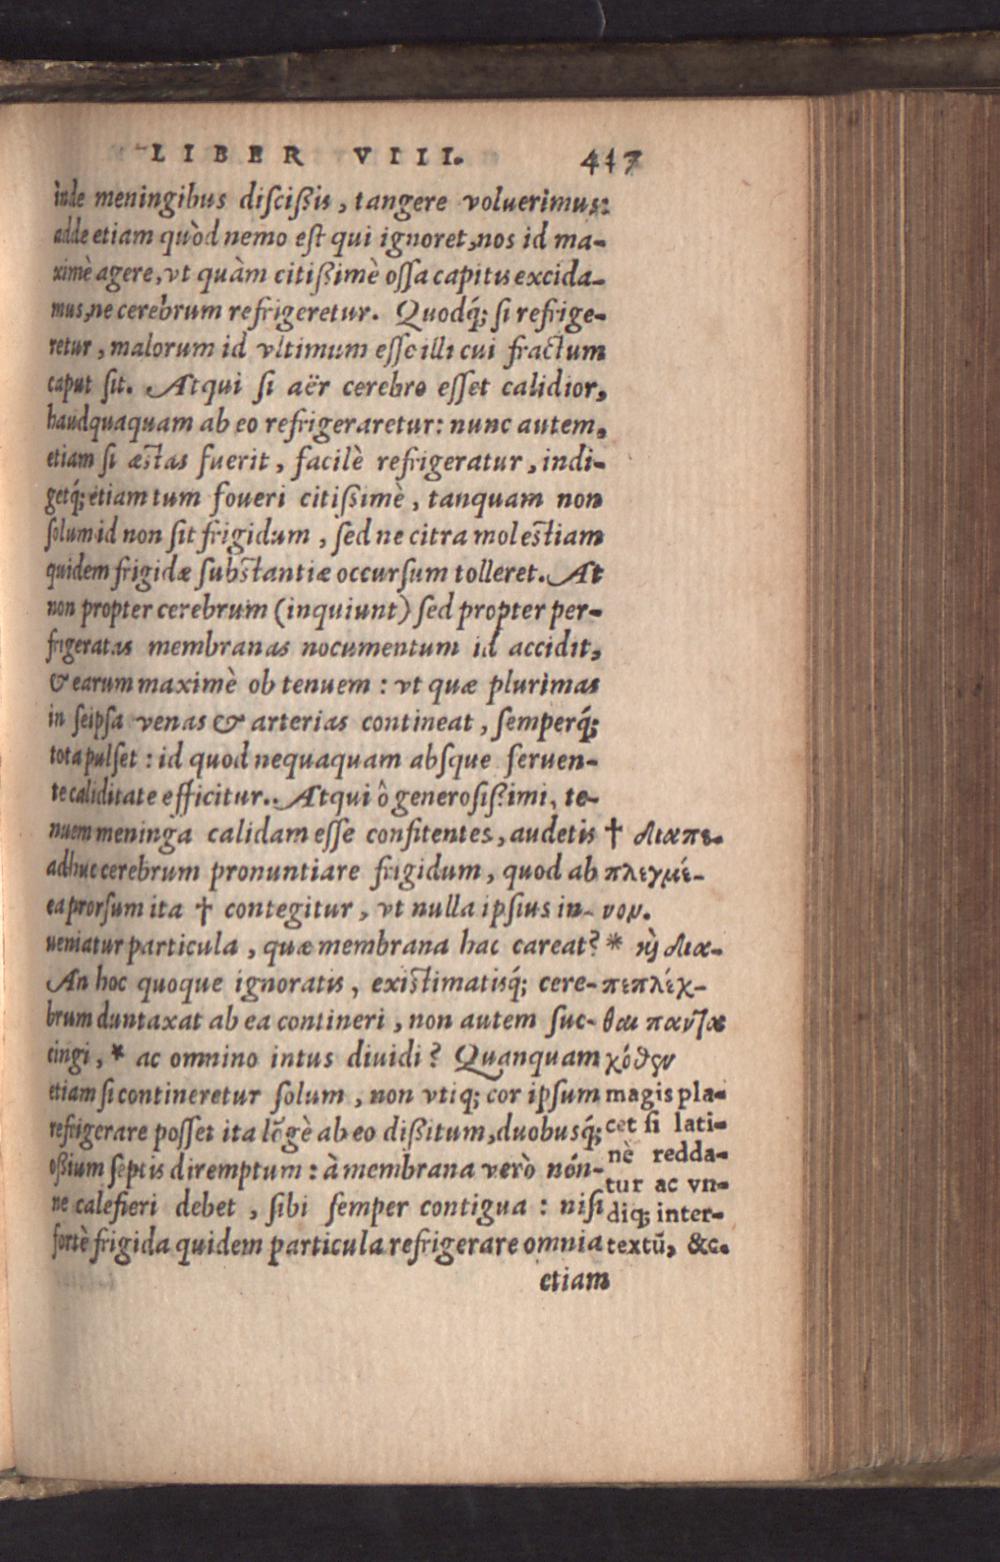 LIBER VIII. 417
inde meningibus discißis, tangere voluerimus:
adde etiam quòd nemo est qui ignoret, nos id ma-
ximè agere, vt quàm citißimè ossa capitis excida-
mus, ne cerebrum refrigeretur. Quodq́; si refrige-
retur, malorum id vltimum esse illi cui fractum
caput sit. Atqui si aër cerebro esset calidior,
haudquaquam ab eo refrigeraretur: nunc autem,
etiam si æstas fuerit, facilè refrigeratur, indi-
getq́; etiam tum foueri citißimè, tanquam non
solum id non sit frigidum, sed ne citra molestiam
quidem frigidæ substantiæ occursum tolleret. At
non propter cerebrum (inquiunt) sed propter per-
frigeratas membranas nocumentum id accidit,
& earum maximè ob tenuem: vt quæ plurimas
in seipsa venas & arterias contineat, semperq́;
tota pulset: id quod nequaquam absque feruen-
te caliditate efficitur. Atqui ô generosißimi, te-
nuem meninga calidam esse confitentes, audetis
adhuc cerebrum pronuntiare frigidum, quod ab
ea prorsum ita † contegitur, vt nulla ipsius in-
ueniatur particula, quæ membrana hac careat?
An hoc quoque ignoratis, existimatisq́; cere-
brum duntaxat ab ea contineri, non autem suc-
cingi, * ac omnino intus diuidi? Quanquam
etiam si contineretur solum, non vtiq; cor ipsum
refrigerare posset ita lõgè ab eo dißitum, duobusq́;
oßium septis diremptum: à membrana verò nón-
ne calefieri debet, sibi semper contigua: nisi
fortè frigida quidem particula refrigerare omnia
etiam
† διαπε-
πλεγμέ-
νον.
* καὶ δια-
πεπλέχ-
θαι πανταχόθεν
magis pla-
cet si lati-
nè redda-
tur ac vn-
diq; inter-
textũ, &c.